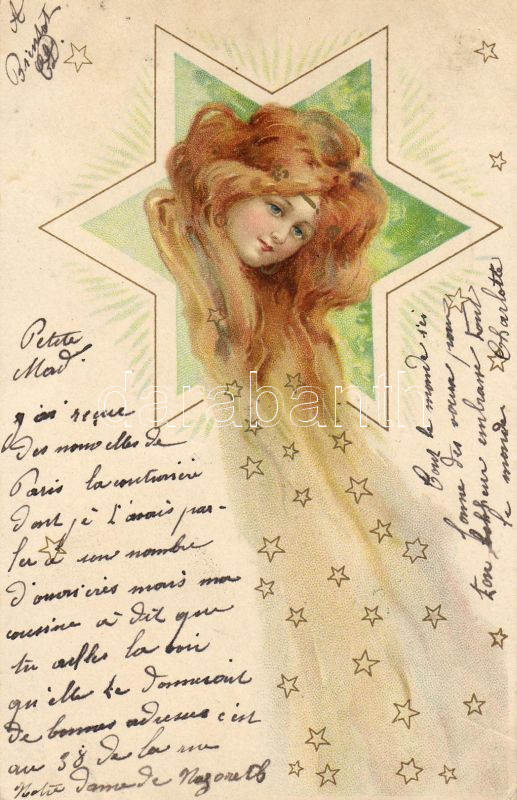 A
Bientôt
Petite
Mad.
j'ai reçue
des nouvelles de
Paris la couturière
dont je t'avais par-
ler à son nombre
d'ouvrières mais ma
cousine a dit que
tu ailles la voir
qu'elle te donnerait
de bonnes adresses c'est
au 38 de la rue
Notre Dame de Nazareth
Tout le monde ici
forme des voeux pour
ton bonheur embrasse tout
le monde Charlotte
darabanth